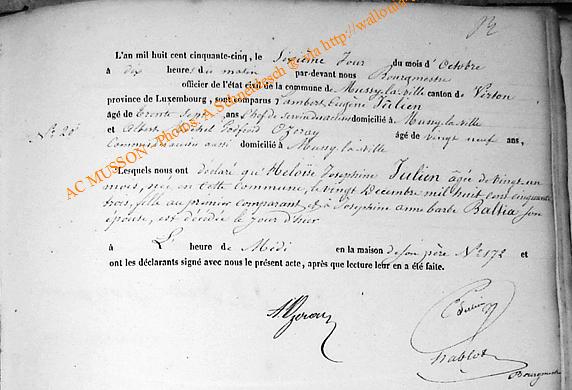 L'an mil huit cent cinquante-cinq, le Sixième Jour du mois d'Octobre
à dix heures du matin par-devant nous Bourgmestre
officier de l'état civil de la commune de Mussy-la-ville canton de Virton
province de Luxembourg, sont comparus Lambert Eugène Julien
âgé de trente sept ans, Chef de domicilié à Mussy-la-ville
N° 20
et Albert Michel Ozeray âgé de vingt neuf ans,
aussi domicilié à Mussy-la-ville
Lesquels nous ont déclaré que Heloïse Josephine Julien âgée de vingt un
mois, née en cette Commune, le vingt Decembre mil huit cent cinquante
trois, fille au premier comparant, et à Josephine anne barbe Balthia son
épouse, est décédée le jour d'hier
à L' heure de Midi en la maison de son père N° 172 et
ont les déclarants signé avec nous le présent acte, après que lecture leur en a été faite.
A. Ozeray
E Julien
Nablot
Bourgmestre
AC MUSSON - Photos: A. Schneidesch @ via http://wallonia